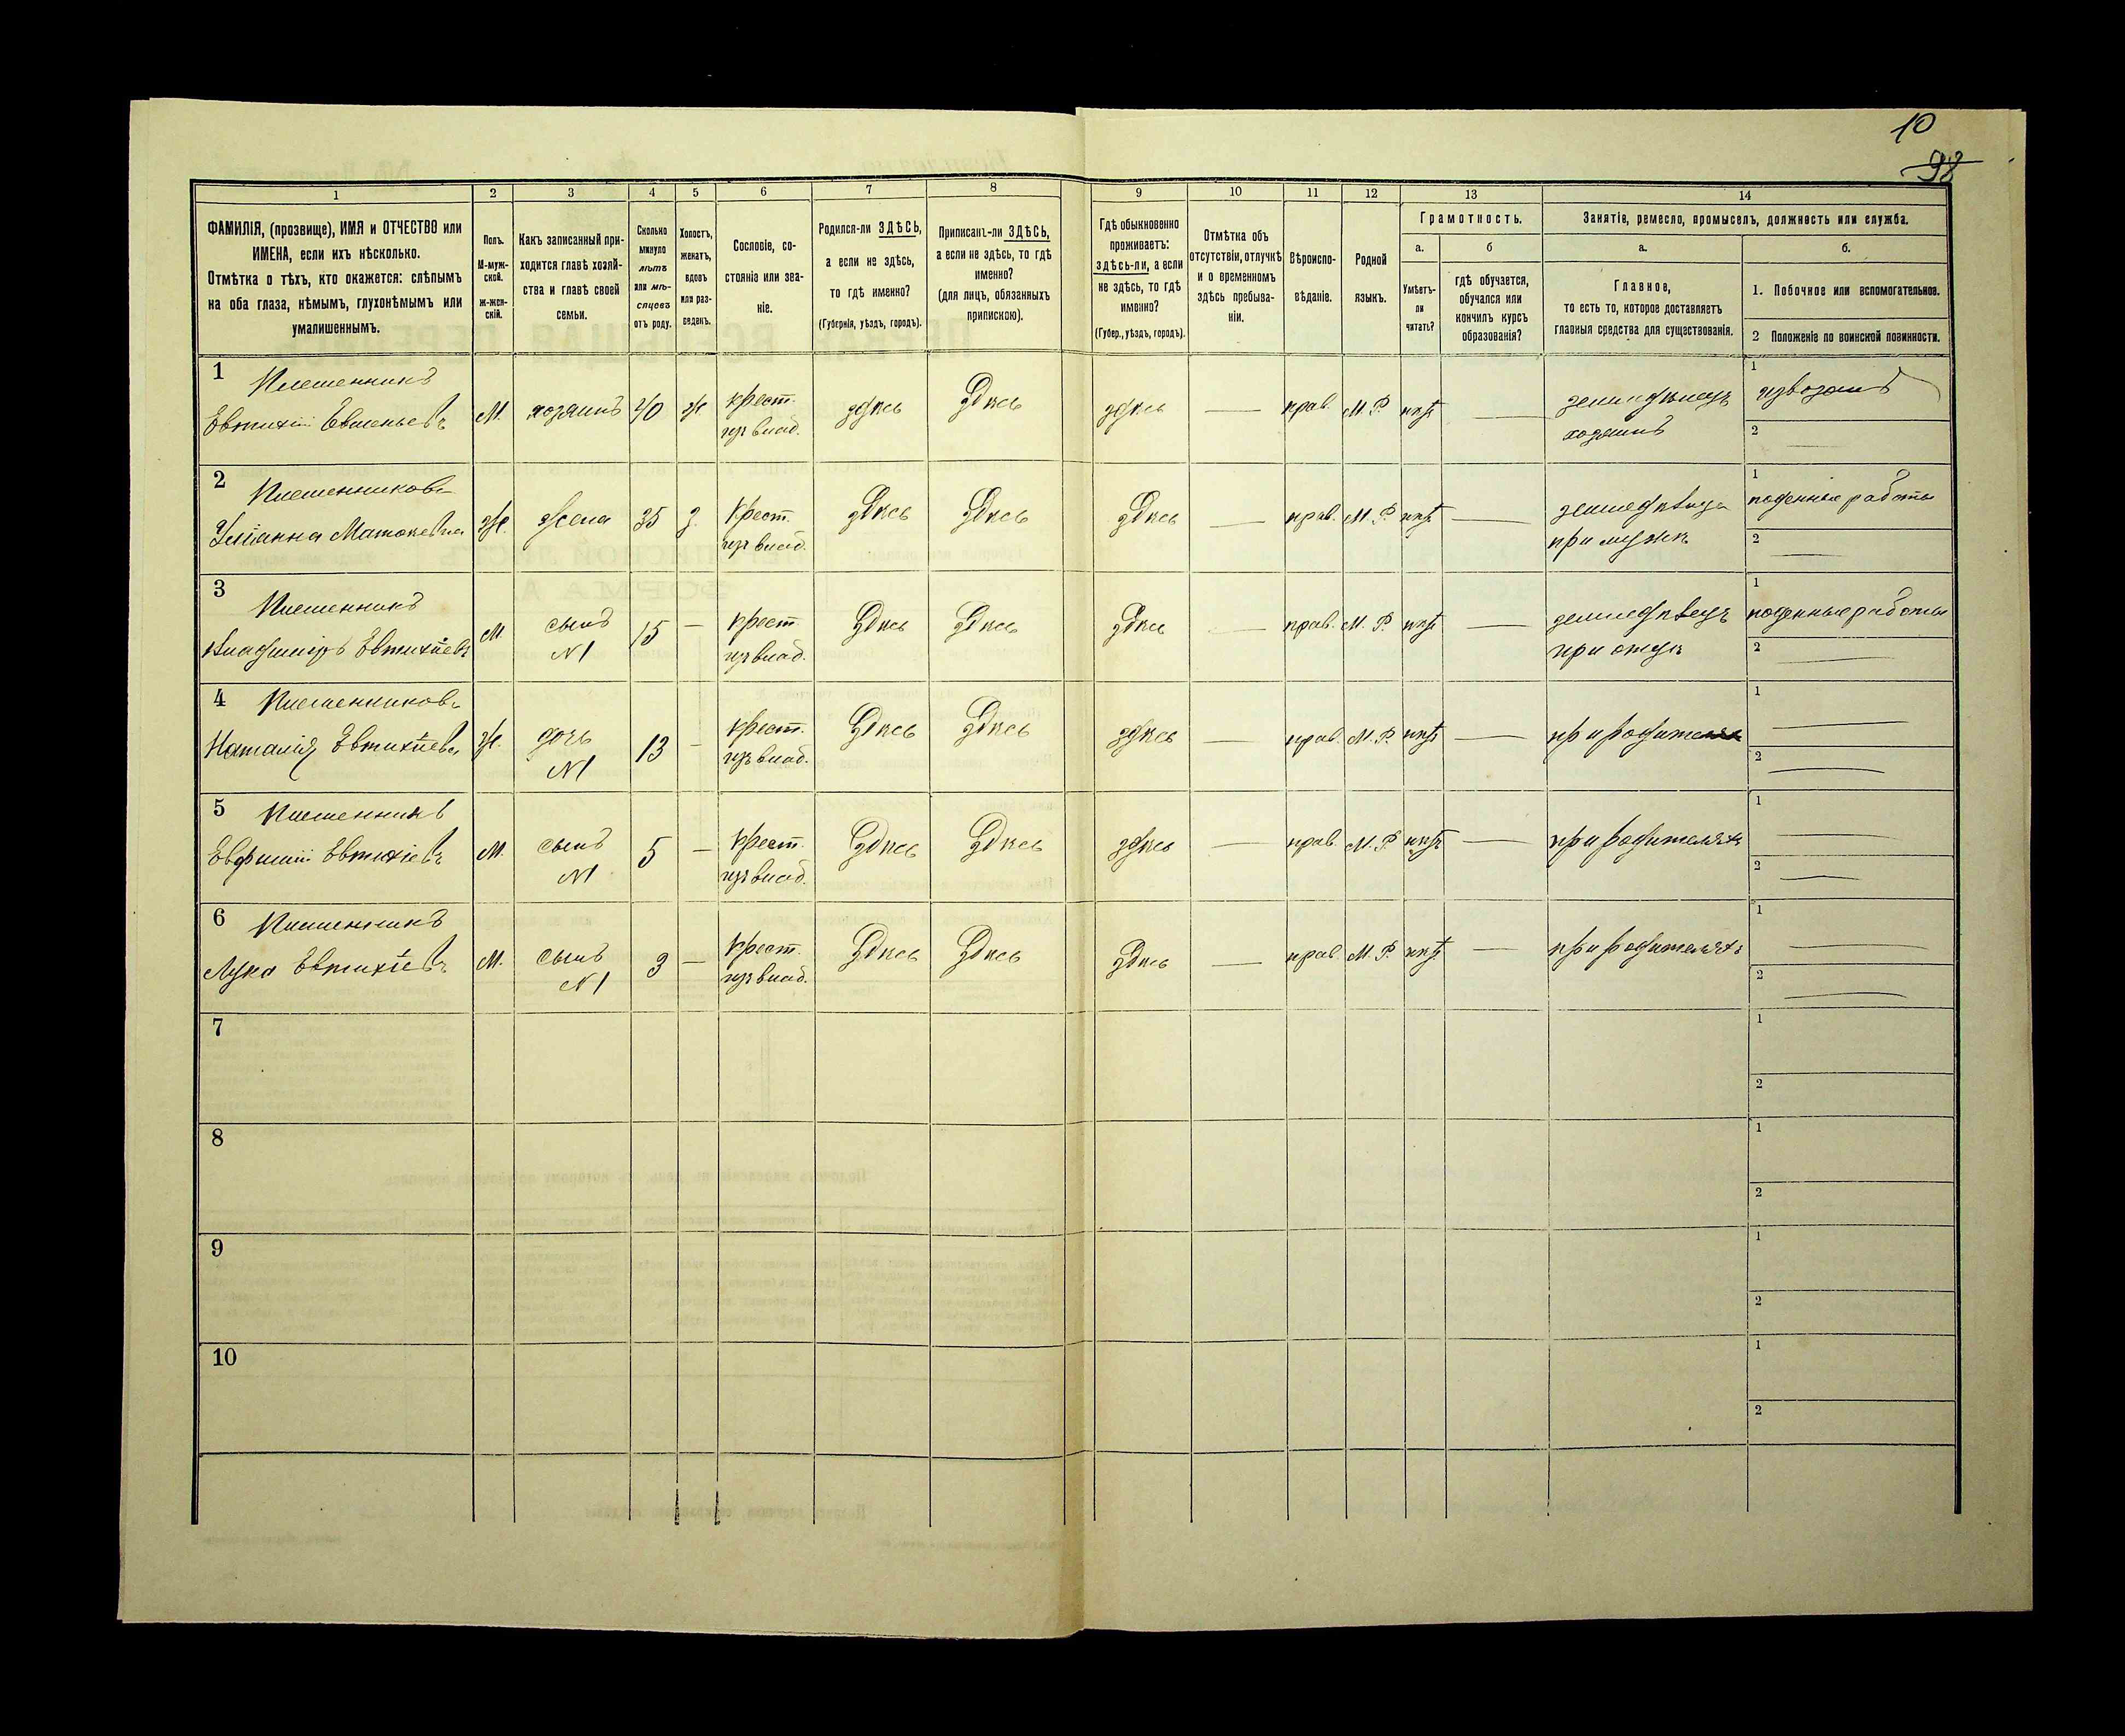 10
98
1
2
3
4
5
6
7
8
9
10
11
12
13
14
ФАМИЛІЯ, (прозвище), ИМЯ и ОТЧЕСТВО или
ИМЕНА, если ихъ нѣсколько.
Отмѣтка о тѣхъ, кто окажется: слѣпымъ
на оба глаза, нѣмымъ, глухонѣмымъ или
умалишеннымъ.
Полъ.
М-муж-
ской.
ж-жен-
скій.
Какъ записанный при-
ходится главѣ хозяй-
ства и главѣ своей
семьи.
Сколько
минуло
лѣтъ
или мѣ-
сяцевъ
отъ роду.
Холостъ,
женатъ,
вдовъ
или раз-
веденъ.
Сословіе, со-
стояніе или зва-
ніе.
Родился-ли ЗДѢСЬ,
а если не здѣсь,
то гдѣ именно?
(Губернія, уѣздъ, городъ).
Приписанъ-ли ЗДѢСЬ,
а если не здѣсь, то гдѣ
именно?
(для лицъ, обязанныхъ
припискою).
Гдѣ обыкновенно
проживаетъ:
здѣсь-ли, а если
не здѣсь, то гдѣ
именно?
(Губер., уѣздъ, городъ).
Отмѣтка объ
отсутствіи, отлучкѣ
и о временномъ
здѣсь пребыва-
ніи.
Вѣроиспо-
вѣданіе.
Родной
языкъ.
Грамотность.
а.
Умѣетъ-
ли
читать?
б
гдѣ обучается,
обучался или
кончилъ курсъ
образованія?
Занятіе, ремесло, промыселъ, должность или служба.
а.
Главное,
то есть то, которое доставляетъ
главныя средства для существованія.
б.
1. Побочное или вспомогательное.
2 Положеніе по воинской повинности.
1
Евтихій
М. хозяинъ 40 ж крест. здѣсь Здѣсь здѣсь — прав. М. Р. нѣтъ — земледѣлецъ
изъ влад. хозяинъ
1 извозомъ
2 —
2
Ж. жена 35 з. крест. Здѣсь Здѣсь Здѣсь — прав. М. Р. нѣтъ — земледѣлица
изъ влад. при мужѣ
1 поденные работы
2 —
3
Владиміръ Евтихіевъ
М сынъ 15 — крест Здѣсь Здѣсь Здѣсь — прав. М. Р. нѣтъ — земледѣлецъ
N1 изъ влад. при отцѣ
1 поденные работы
2 —
4
Наталія Евтихіева
Ж. дочь 13 — крест. Здѣсь Здѣсь здѣсь — прав. М. Р. нѣтъ —
N1 изъ влад.
1 —
2 —
5
Евфимій Евтихіевъ
М. сынъ 5 — крест. Здѣсь Здѣсь здѣсь — прав. М. Р нѣтъ — при родителяхъ
N1 изъ влад.
1 —
2 —
6
Лука Евтихіевъ
М. сынъ 3 — крест. Здѣсь Здѣсь Здѣсь — прав. М. Р. нѣтъ — при родителяхъ
N1 изъ влад.
1 —
2 —
7
1
2
8
1
2
9
1
2
10
1
2